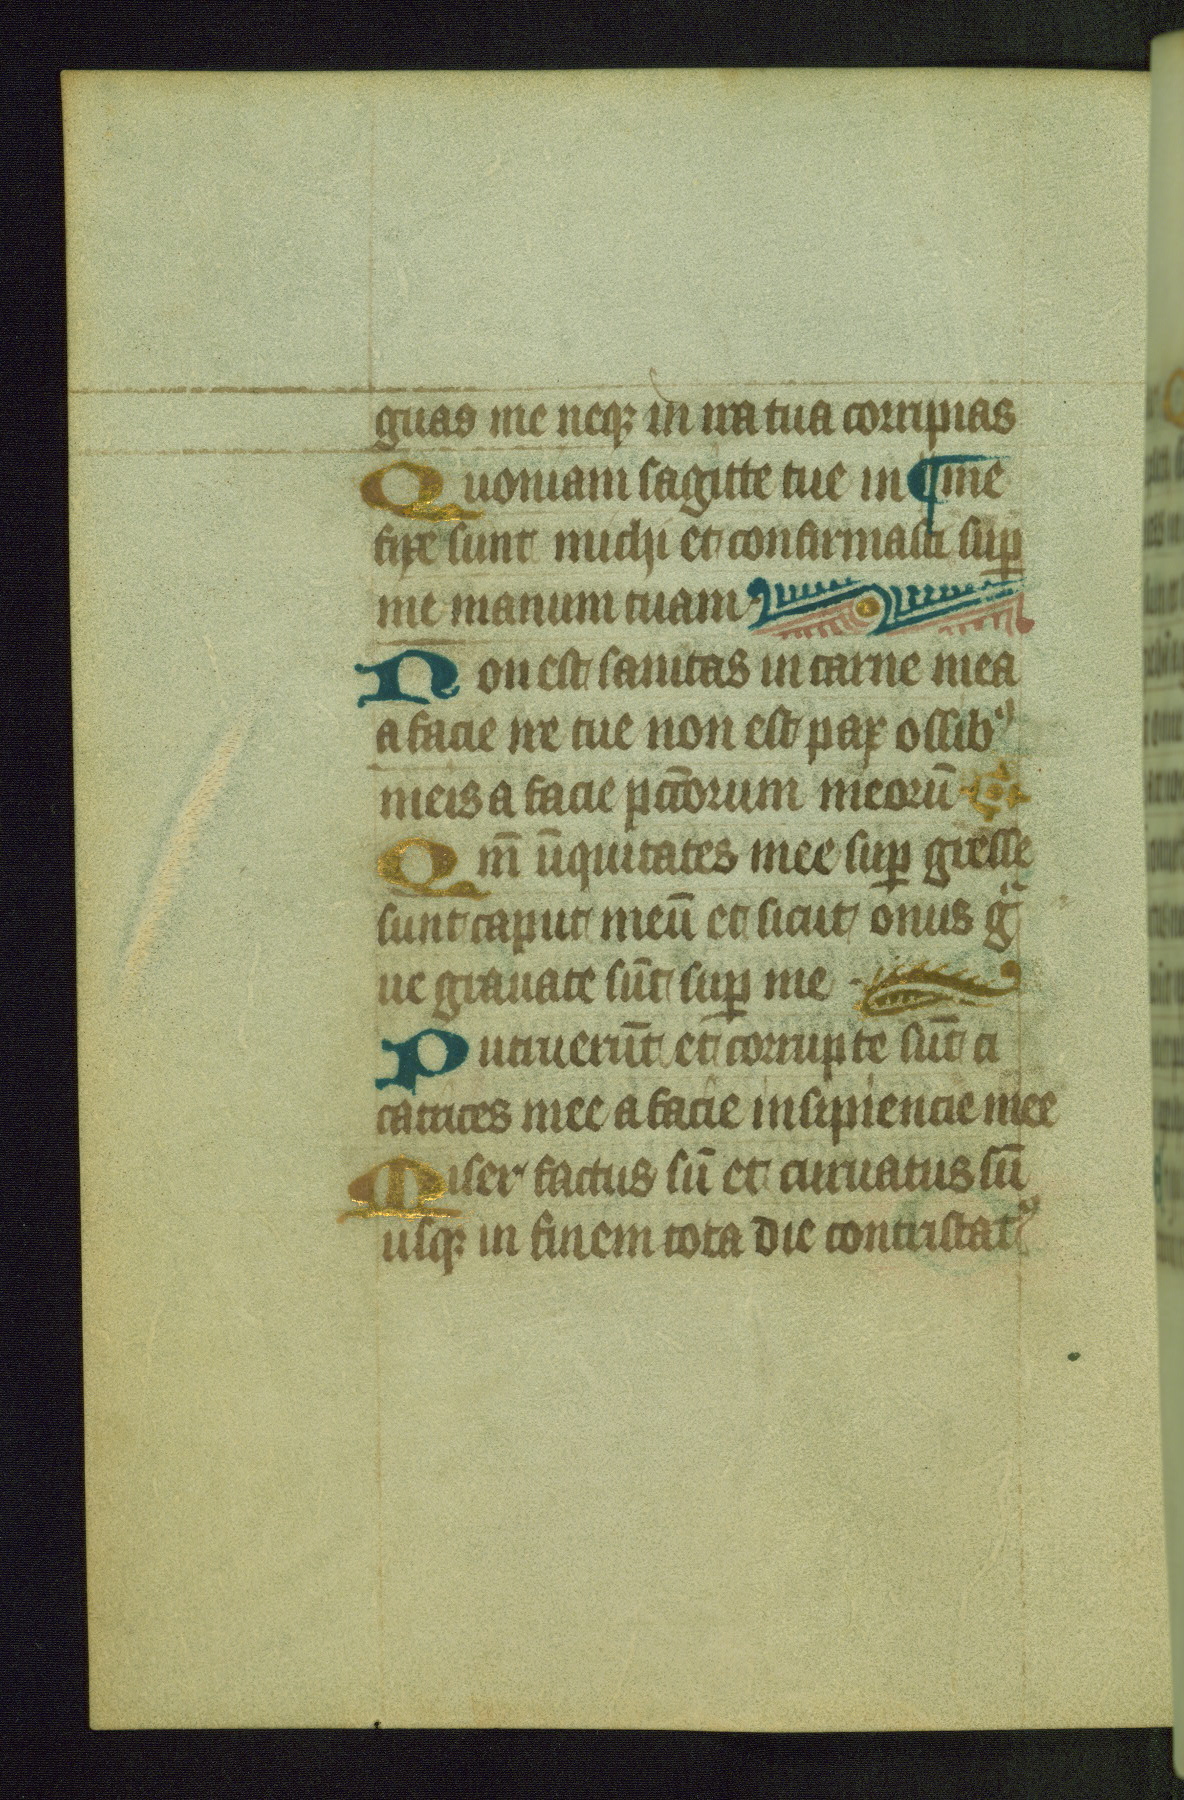 guas me neqꝫ in ira tua corripias
Quoniam sagitte tue in ¶ me
fixe sunt michi et confirmasti suꝑ
me manum tuam
Non est sanitas in carne mea
a facie ire tue non est pax ossibꝰ
meis a facie pct̄orum meorū
Qm̄ iīquitates mee suꝑ gresse
sunt caput meū et sicut onus gͣ
ue grauate sūt suꝑ me
Putruerūt et corrupte sūt ci
catrices mee a facie insipiencie mee
Miser factus sū et curuatus sū
usqꝫ in finem tota die contristatꝰ